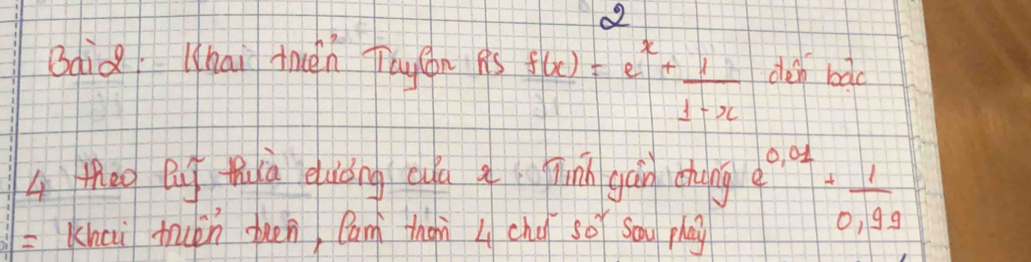 2
Bài 2: Khai triển Taylon hs f(x) = e^x + 1/(1-x) đến bậc
4 theo luỹ thừa dương của x Tính gần đúng e^0,01 + 1/0,99
= Khai triển trên, làm tròn 4 chữ số sau phảy